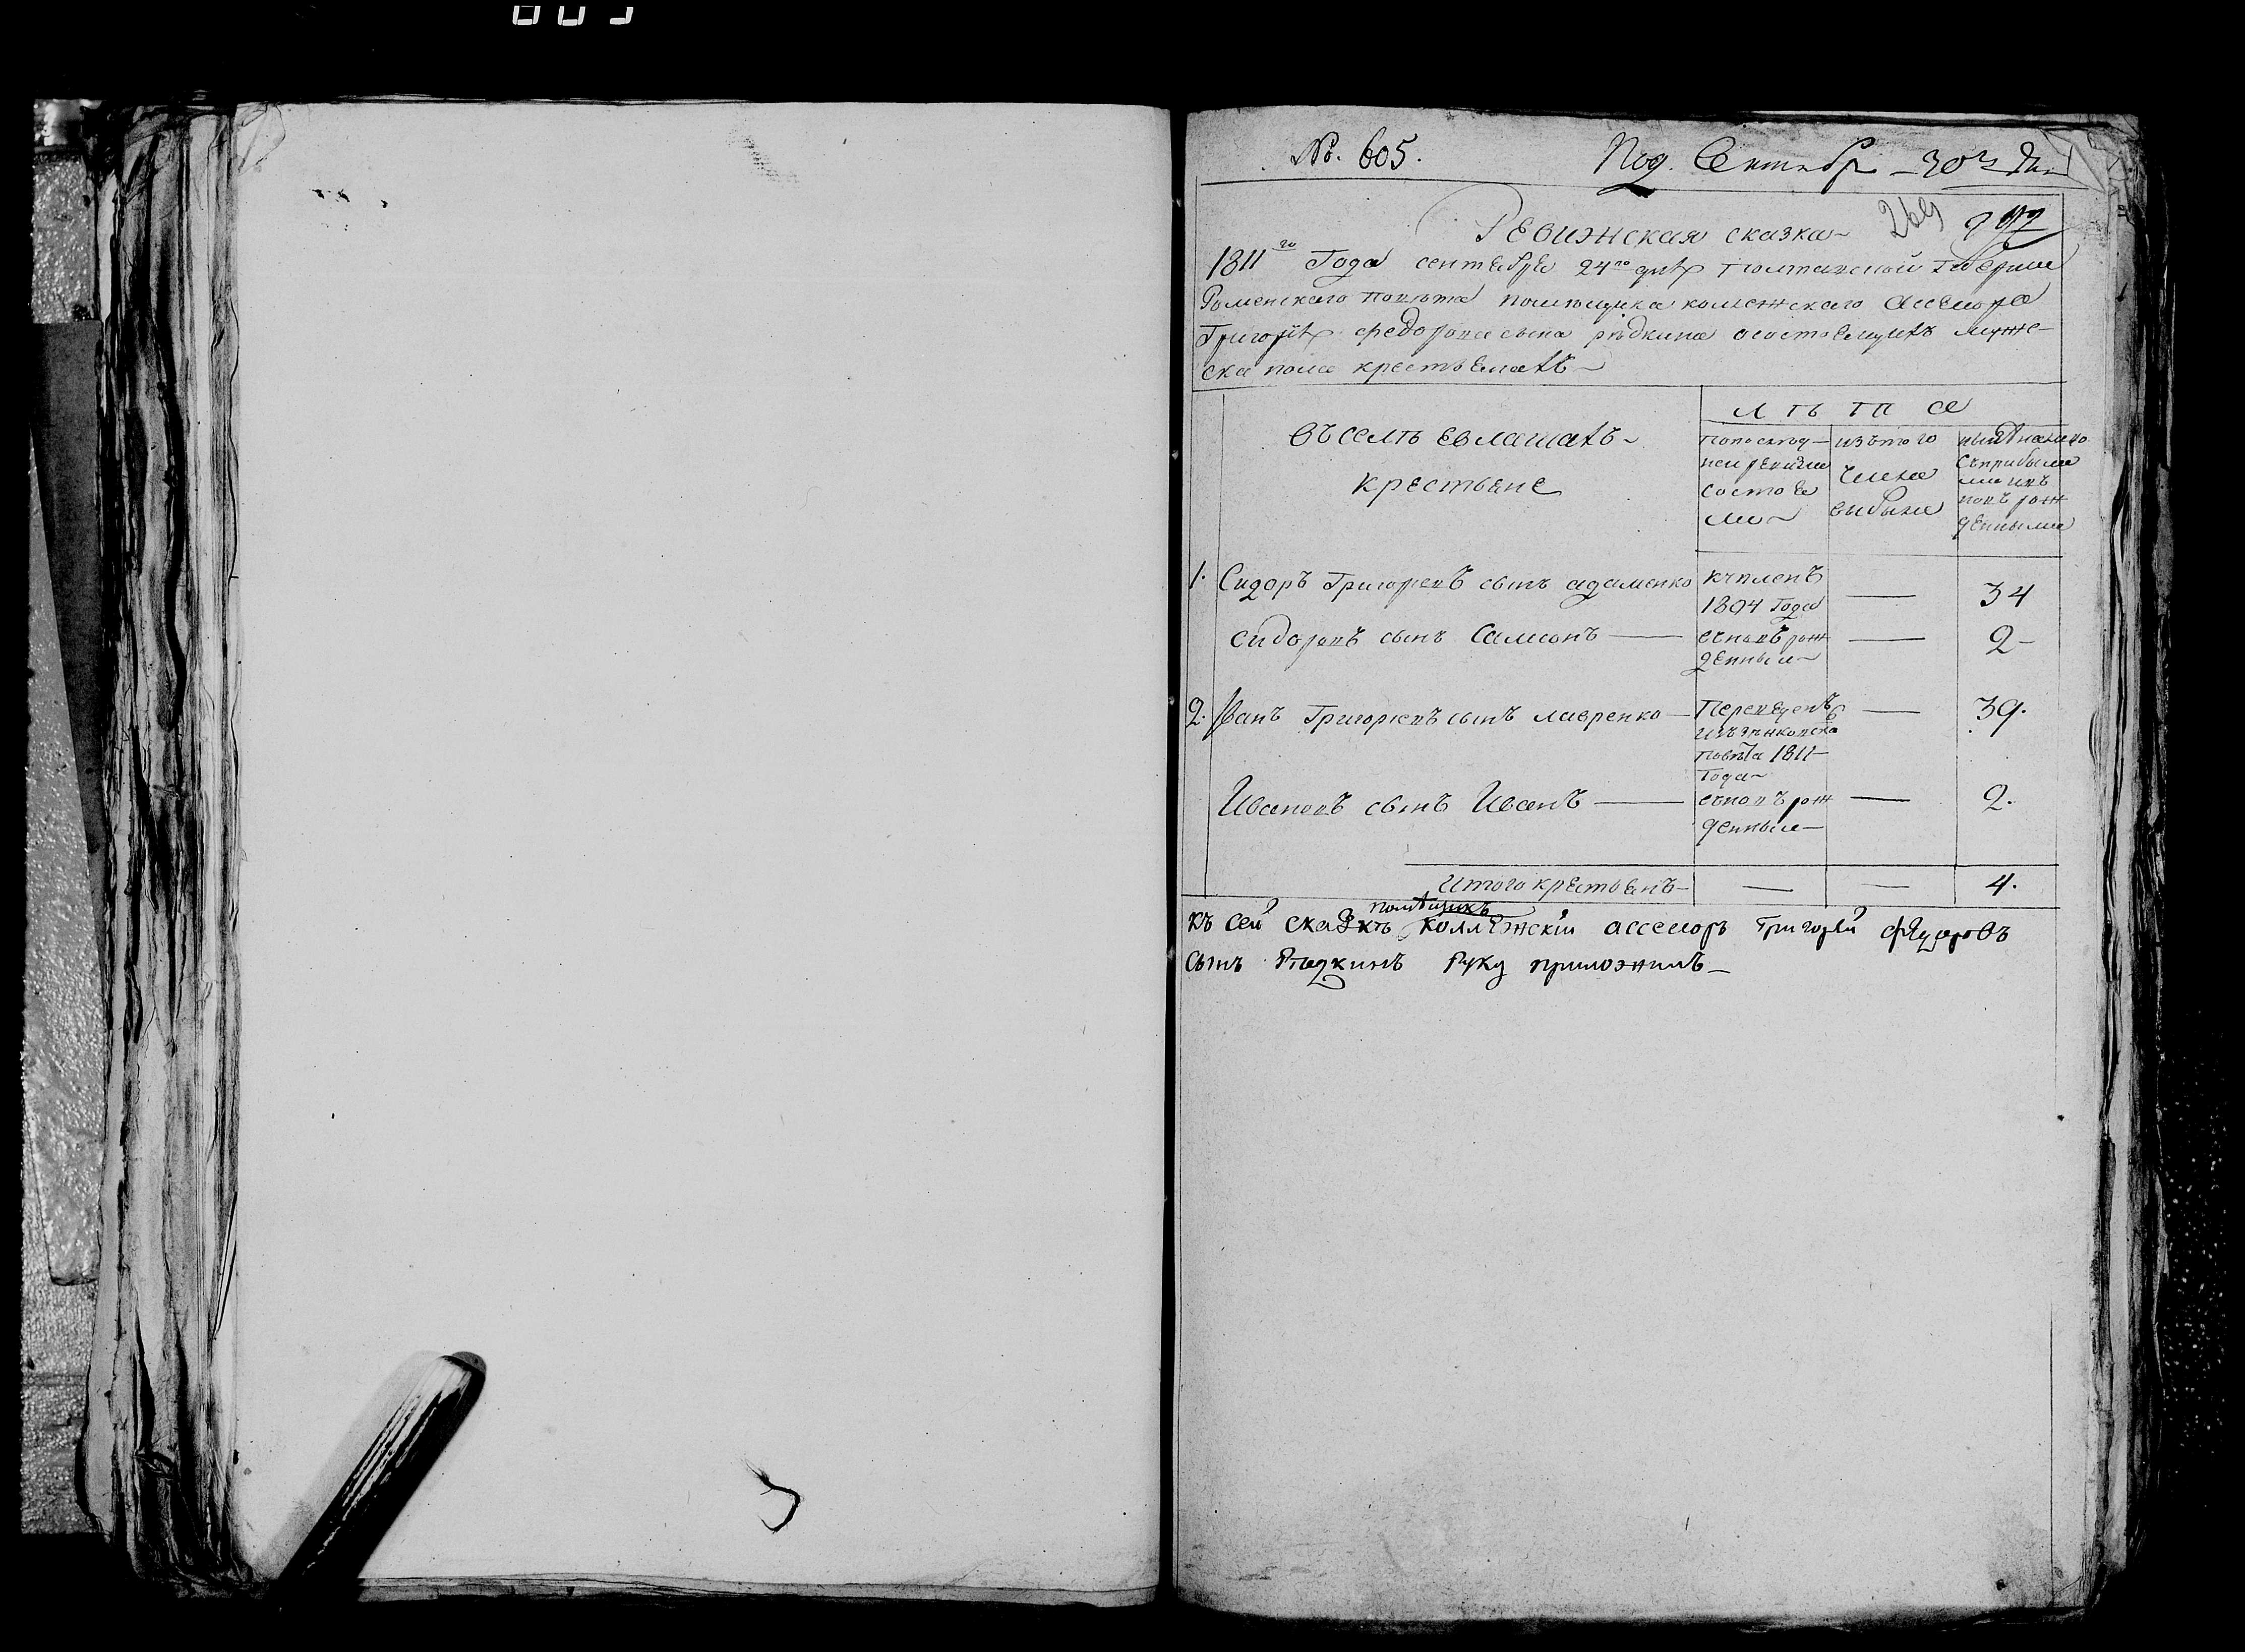 №. 605.
Под. Сентябр 30го дня
269
Ревизская сказка
1811го Года сентября 24го дня Полтавской Губернии
Роменского повета помещика колежского Ассесора
Григорія федорова сына редкина осостоящихъ муже-
ска пола крестьянахъ
въ селе Евлашахъ
крестьяне
Л е т а
попослед-
ней ревизіи
состоя
ло
изътого
числа
выбыло
ныне налицо
Съприбылы
ми и въ
новъ рож
денными
1. Сидоръ Григорьевъ сынъ адаменко
купленъ
1804 Года
—
34
Сидоровъ сынъ Самсонъ —
въновъ рож
денный
—
2
2. Иванъ Григорьевъ сынъ лавренко
Переведенъ
Изъ Зеньковска
повета 1811
Года
—
39.
Ивановъ сынъ Иванъ —
въновъ рож
денный
—
2.
Итого крестьянъ — — 4.
помѣщикъ
къ сей сказкѣ коллежскій ассесоръ Григорій федоровъ
сынъ Рѣдкинъ руку приложилъ